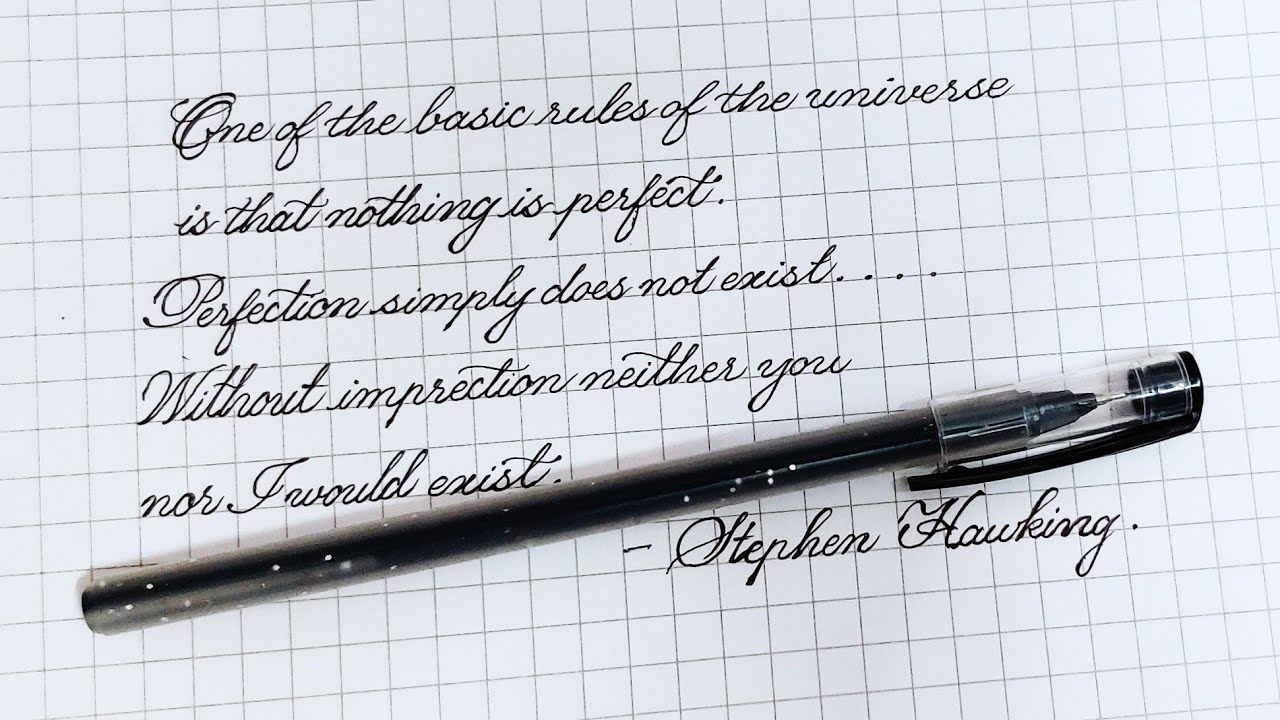 One of the basic rules of the universe
is that nothing is perfect.
Perfection simply does not exist....
Without imprection neither you
nor I would exist.
- Stephen Hawking.